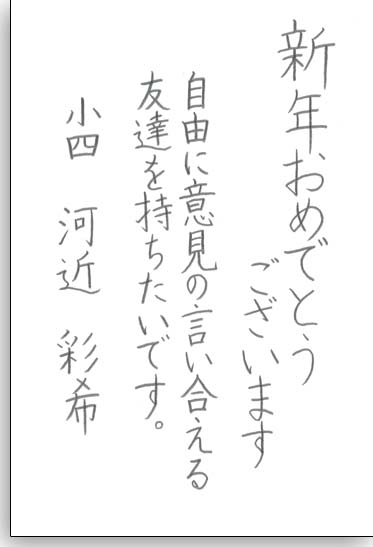 新年おめでとう
ございます
自由に意見の言い合える
友達を持ちたいです。
小四 河近 彩希